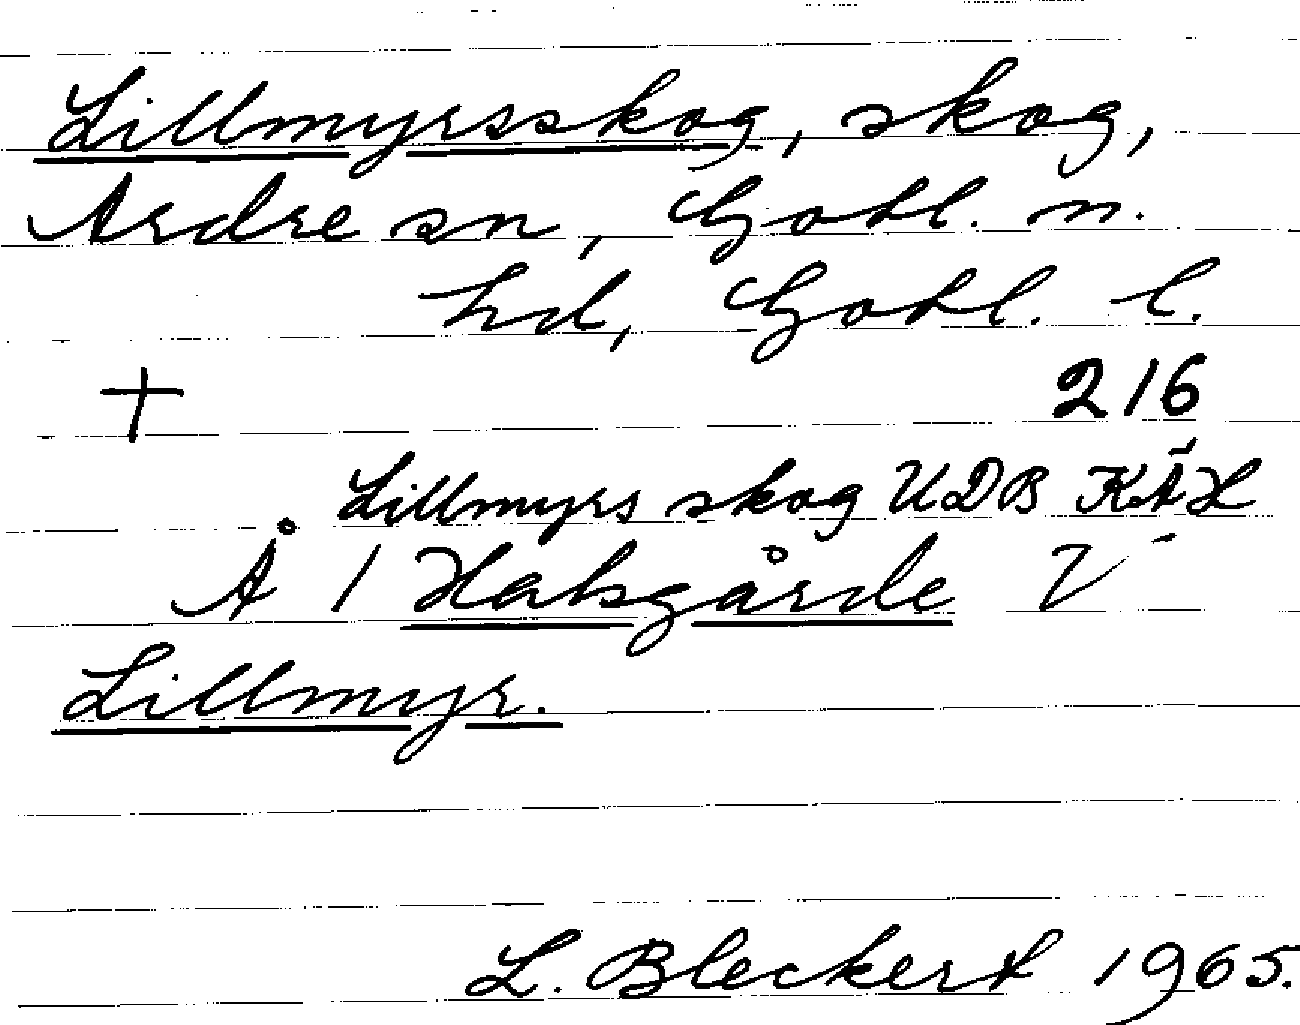 Lillmyrsskog, skog,
Ardre sn, Gotl. n.
hd, Gotl. l.
+ 216
Lillmyrs skog UDB KÄH
Å 1 Halsgårde V
Lillmyr.
L. Bleckert 1965.